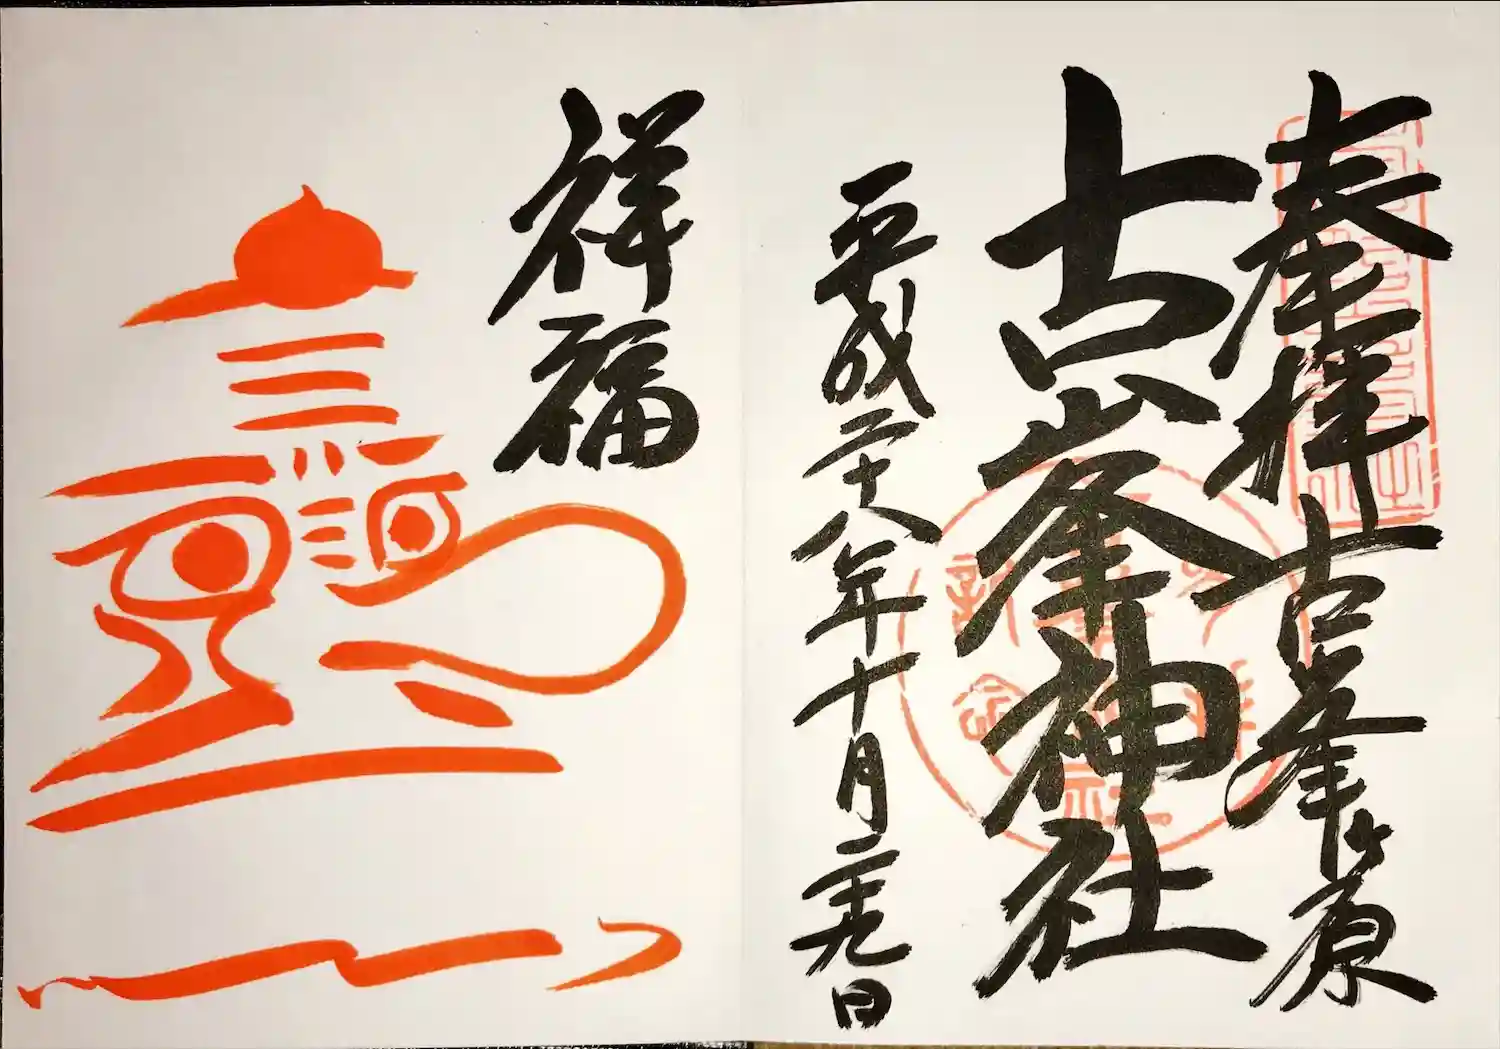 奉拝 古峯ヶ原
古峯神社
平成二十八年十月二十九日
祥福